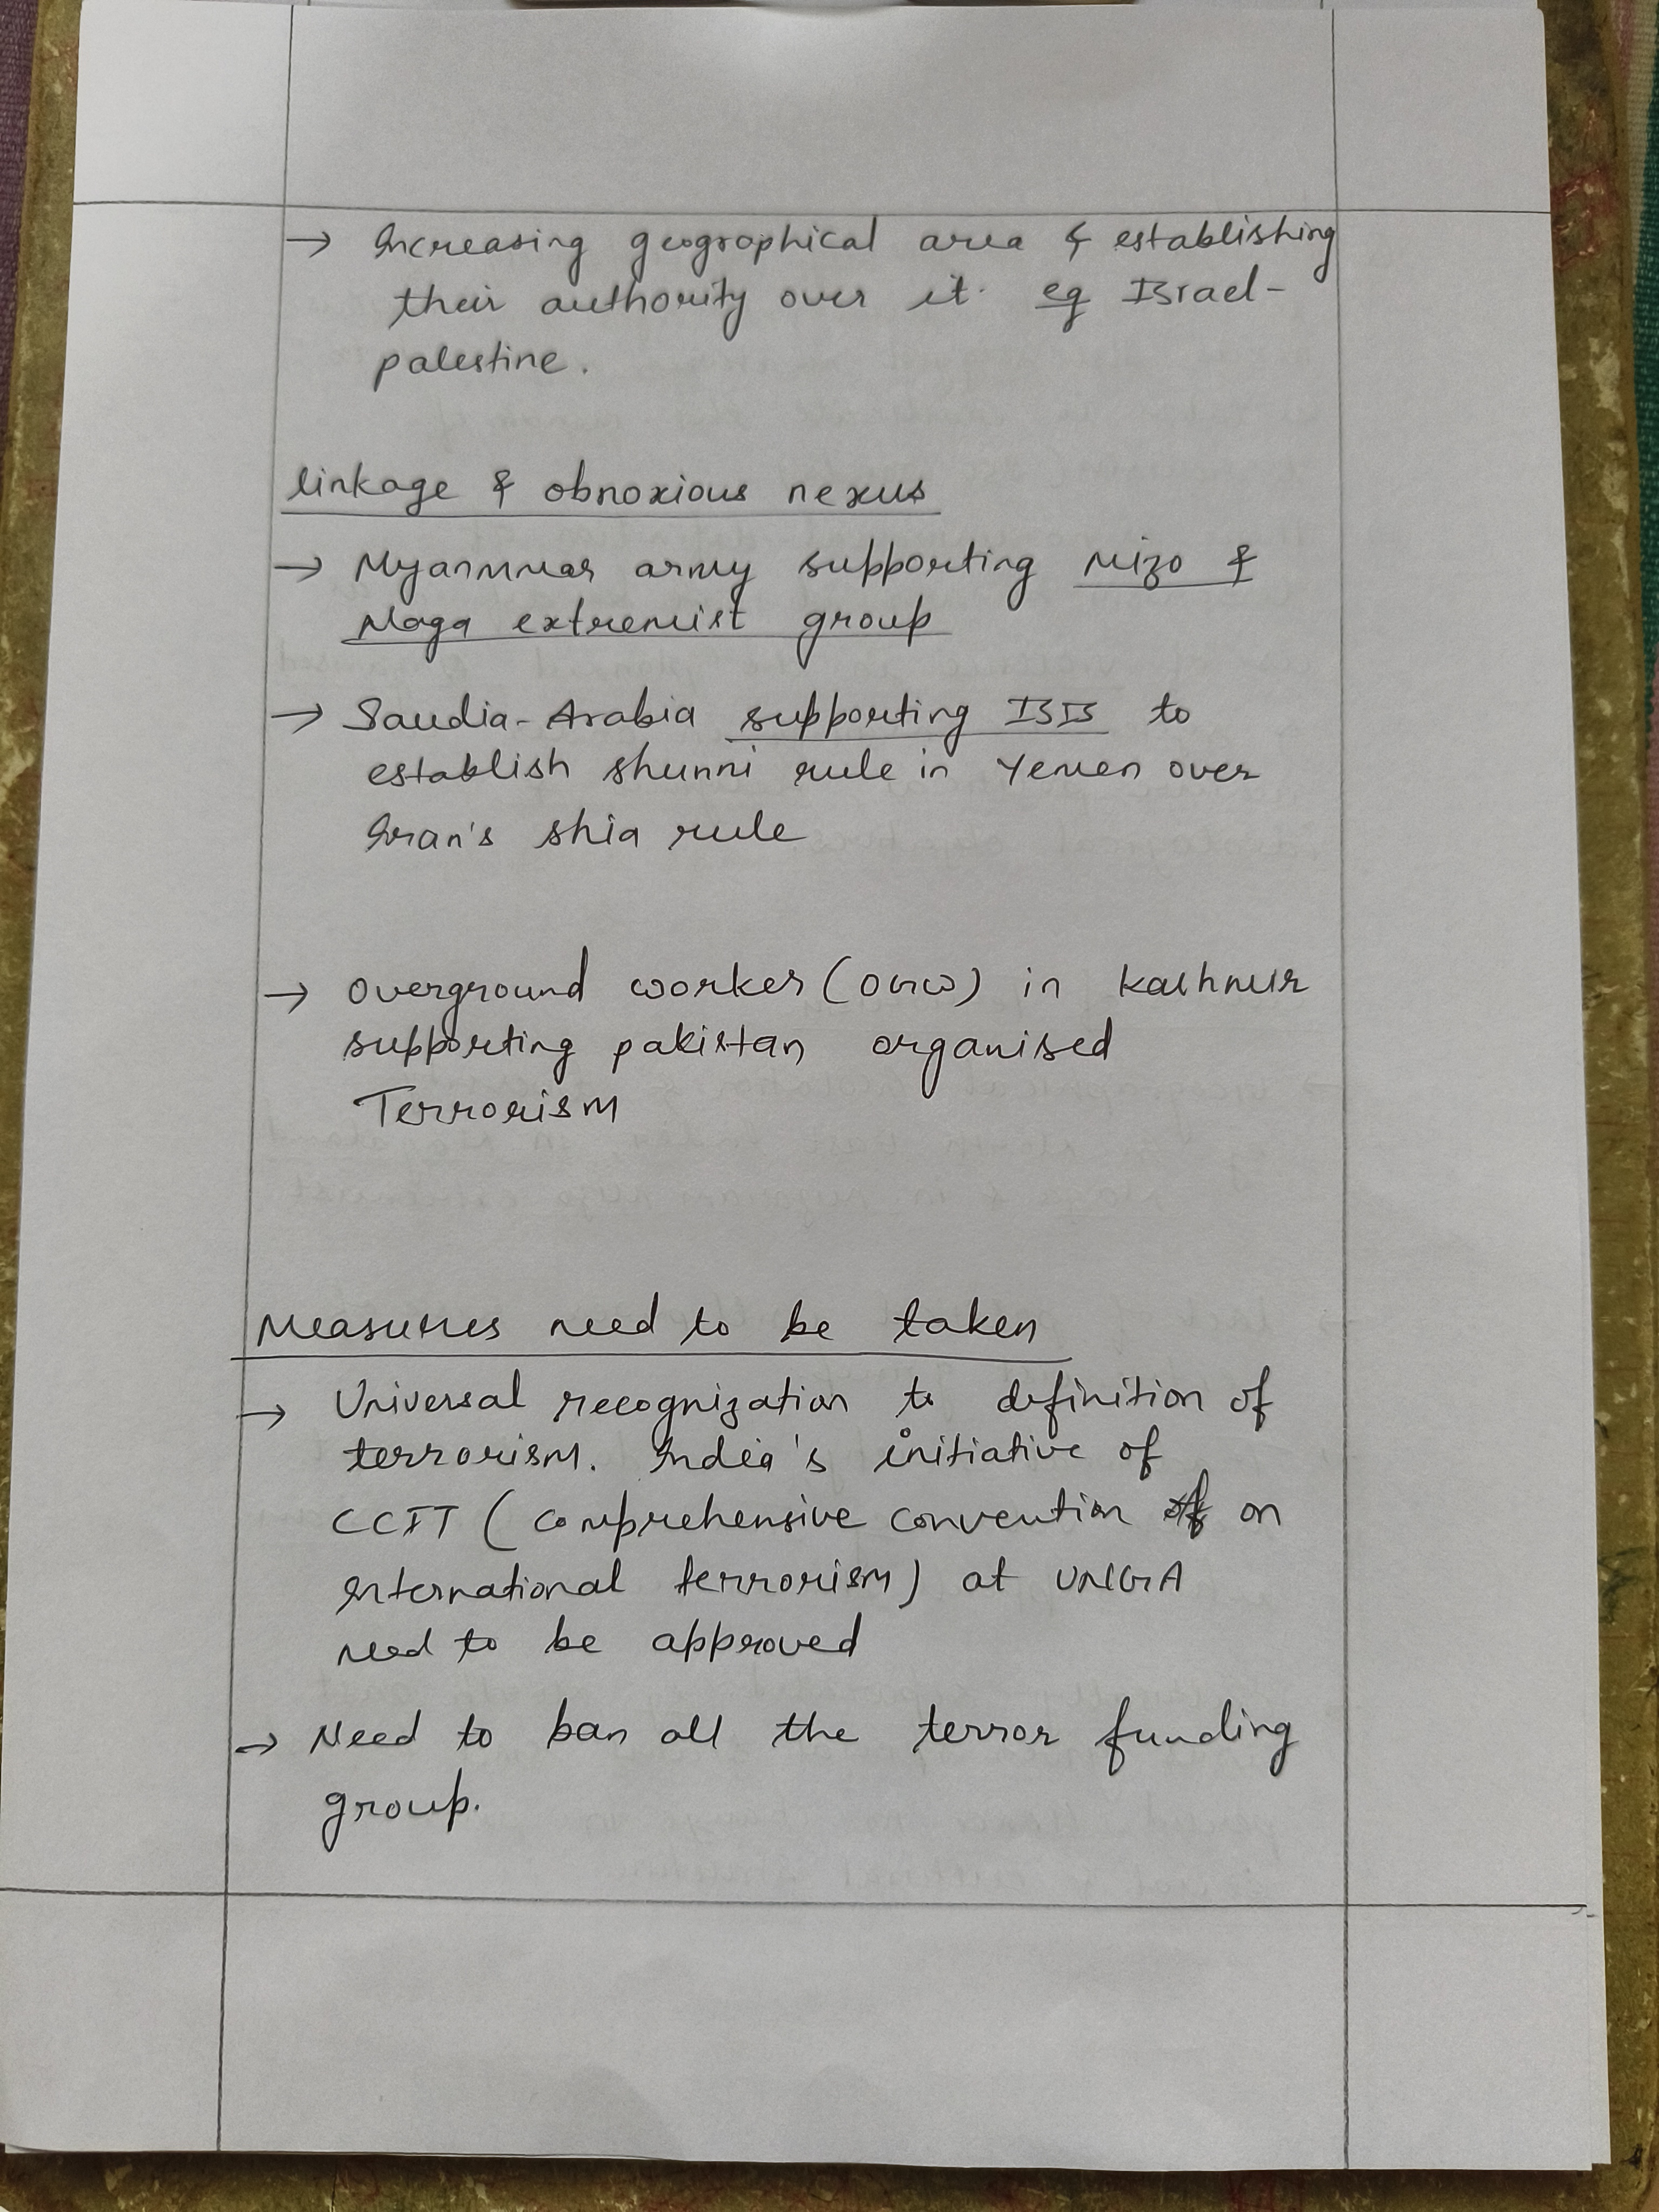 → Increasing geographical area & establishing
their authority over it. eg Israel-
palestine.
linkage & obnoxious nexus
→ Myanmmar army supporting Mizo &
Naga extremist group
→ Saudia-Arabia supporting ISIS to
establish shunni rule in Yemen over
Iran's shia rule
→ Overground worker (OGW) in Kashmir
supporting pakistan organised
Terrorism
Measures need to be taken
→ Universal recognization to definition of
terrorism. India's initiative of
CCIT (comprehensive convention of on
International terrorism) at UNGA
need to be approved
→ Need to ban all the terror funding
group.